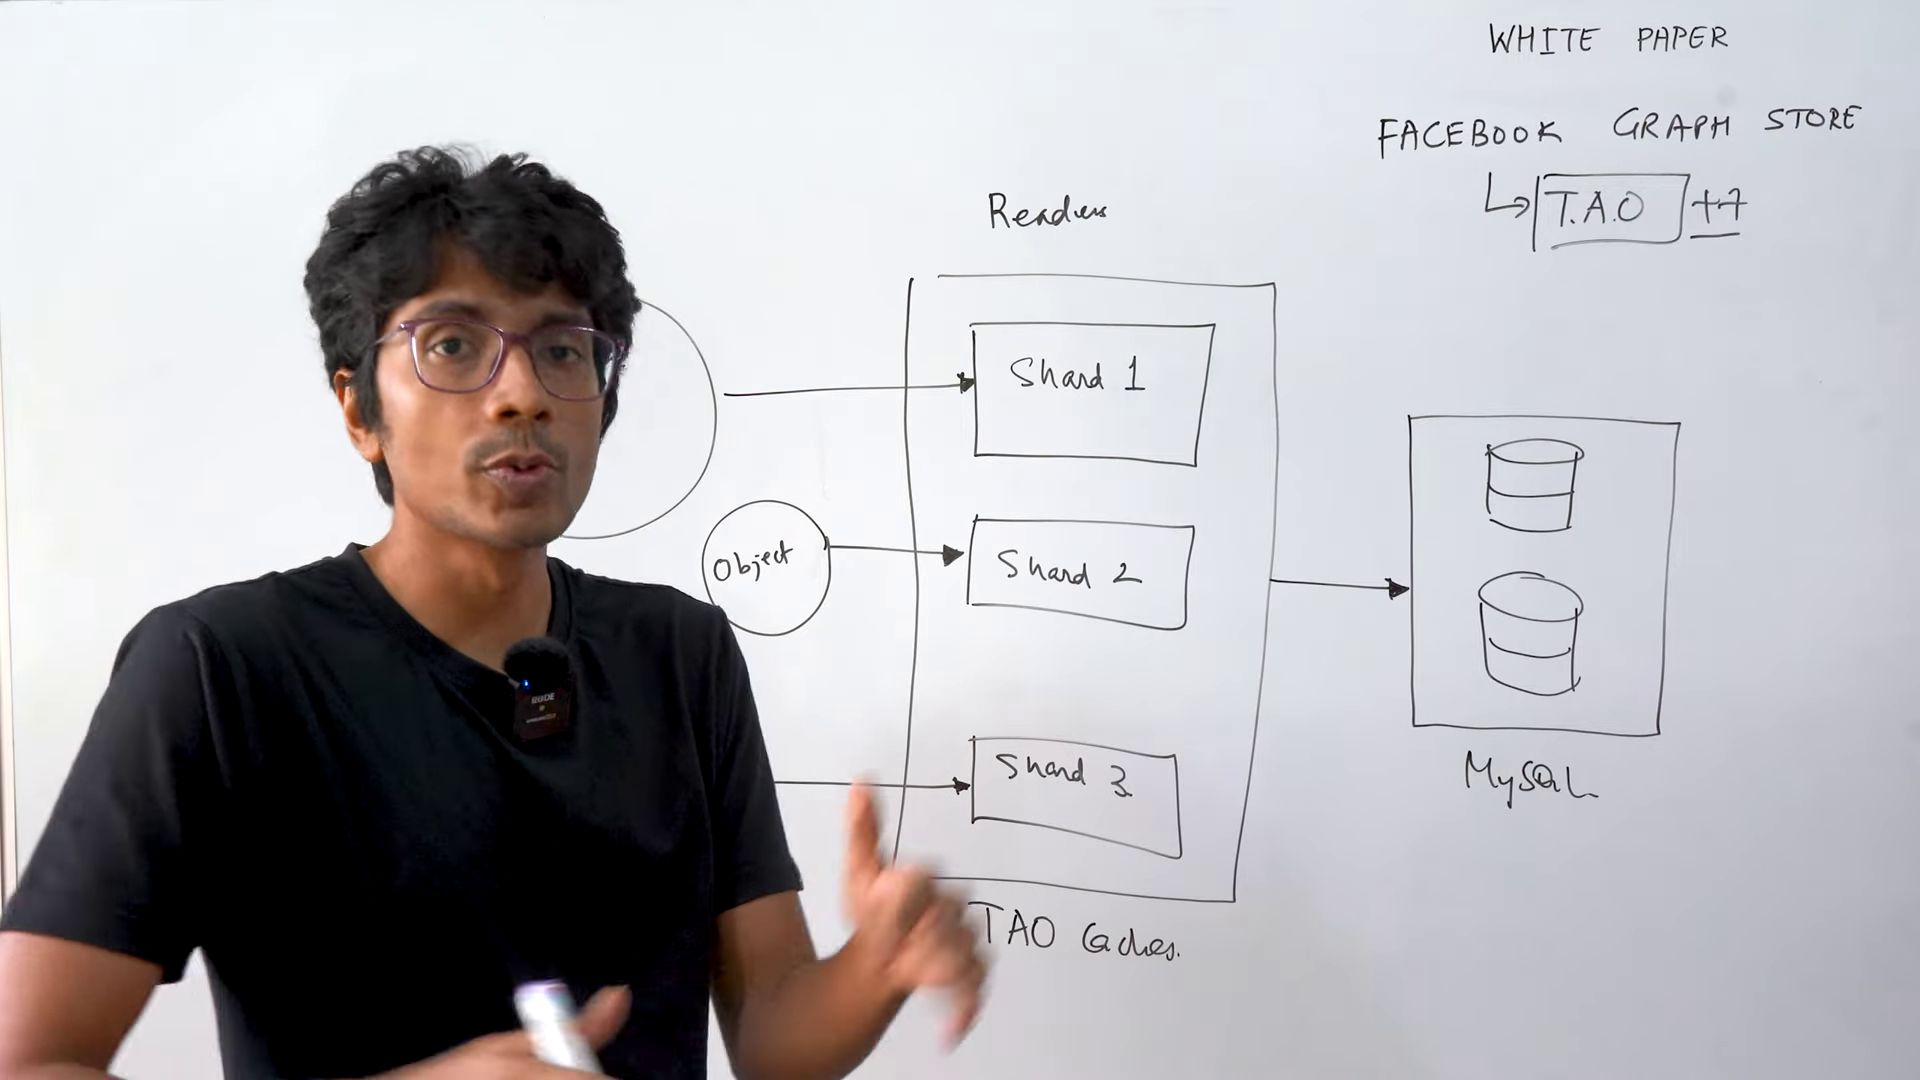 WHITE PAPER
FACEBOOK GRAPH STORE
T.A.O ++
Readers
Shard 1
Object
Shard 2
Shard 3
MySQL
TAO Caches.
RØDE